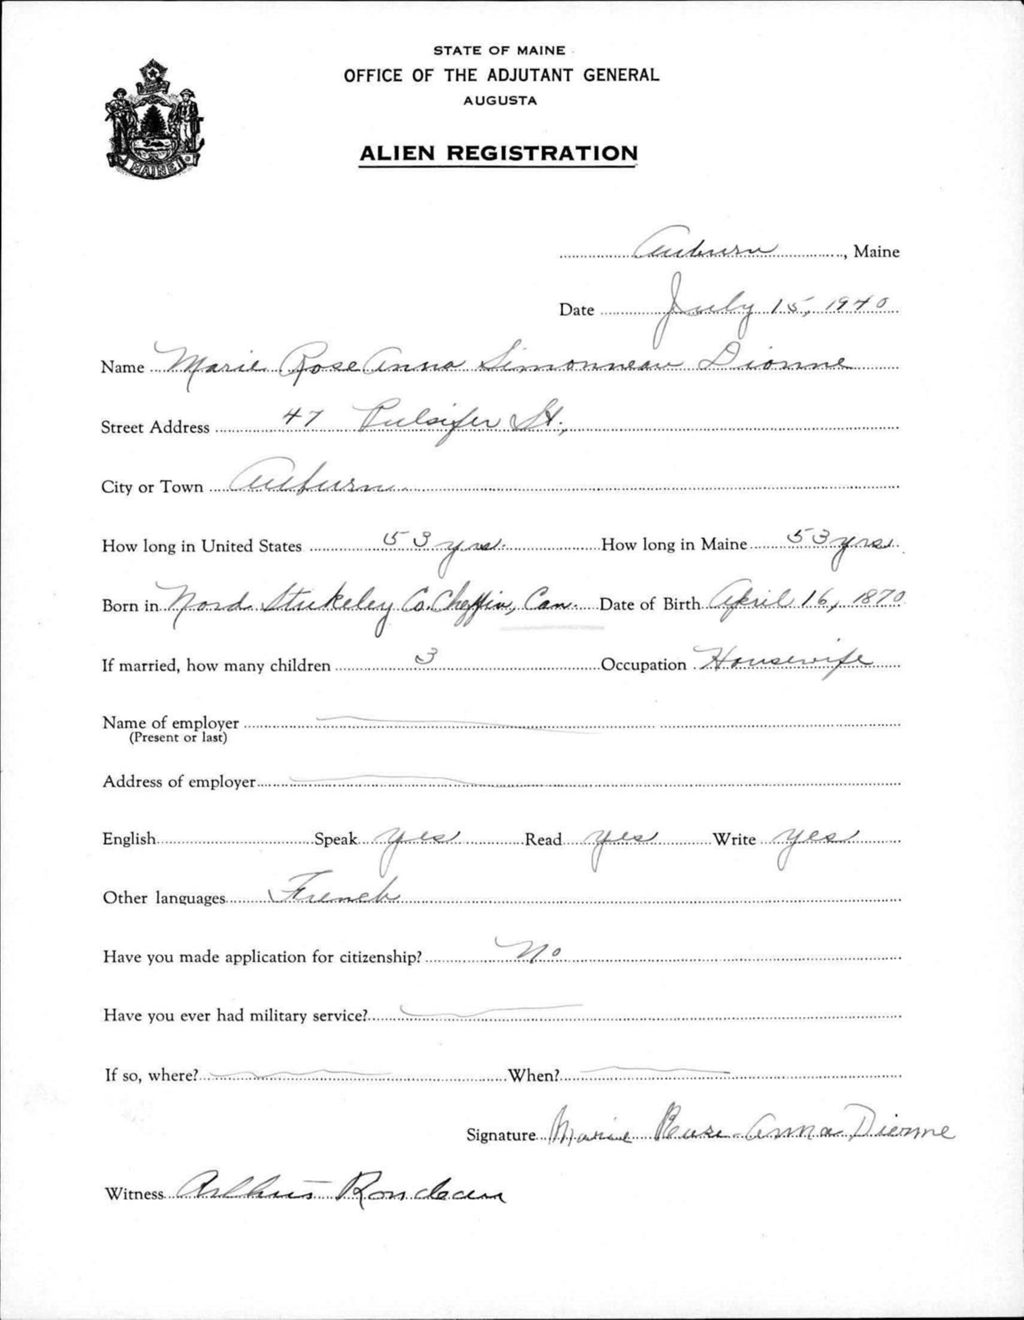 STATE OF MAINE
OFFICE OF THE ADJUTANT GENERAL
AUGUSTA
ALIEN REGISTRATION
MAINE
Auburn, Maine
Date July 15, 1940
Name Marie Rose Anna Simonneau Dionne
Street Address 47 Pulsifer St.,
City or Town Auburn
How long in United States 53 yrs. How long in Maine 53 yrs.
Born in Nord Stukeley Co. Cheffin, Can. Date of Birth April 16, 1870
If married, how many children 3 Occupation Housewife
Name of employer
(Present or last)
Address of employer
English Speak yes Read yes Write yes
Other languages French
Have you made application for citizenship? No
Have you ever had military service?
If so, where? When?
Signature Marie Rose-Anna Dionne
Witness Rondeau